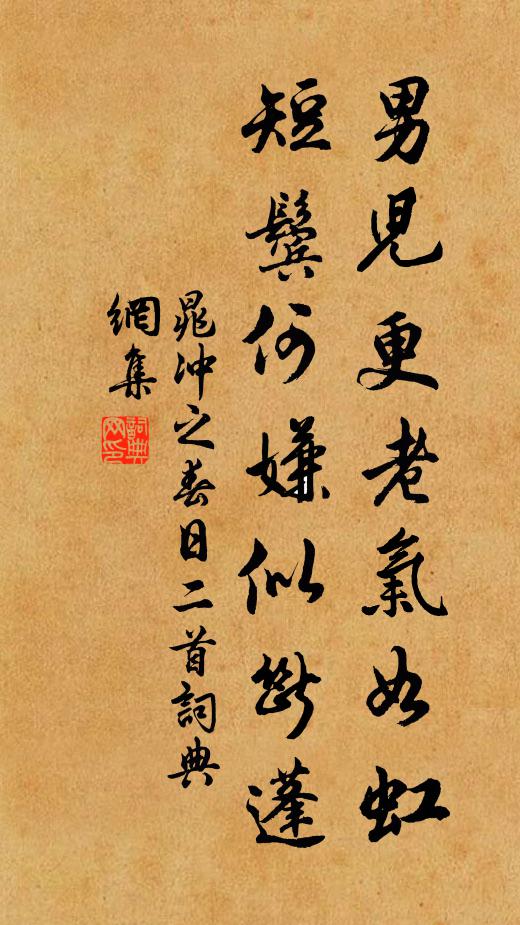 男兒更老氣如虹
短鬢何嫌似斷蓬
晁沖之春日二首詞典
網集
詞典
网印